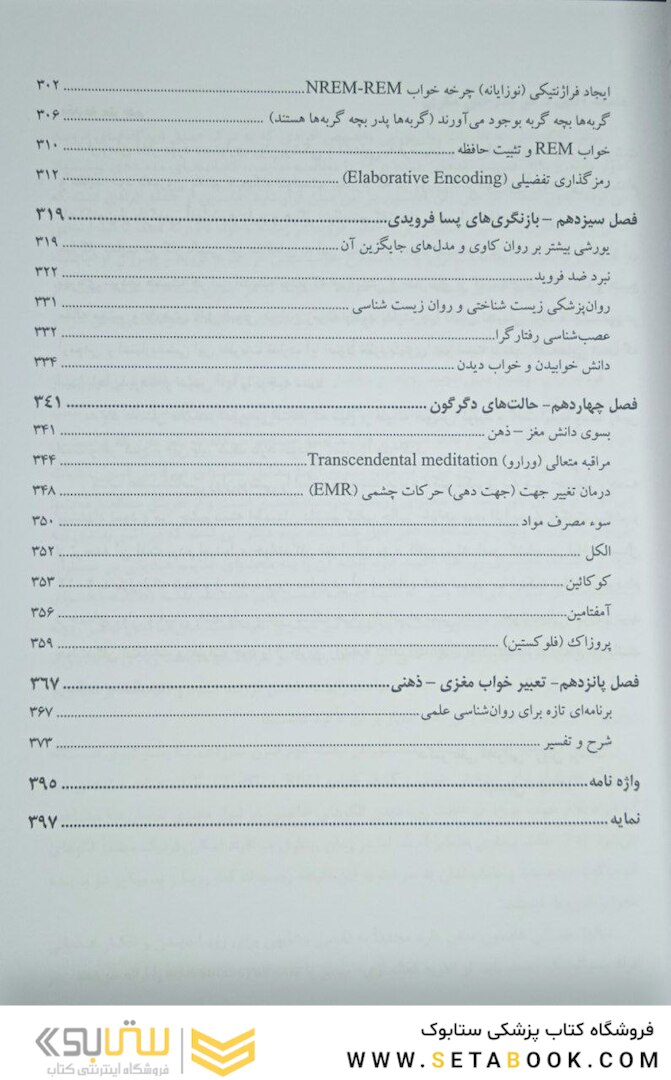 ایجاد فراژنتیکی (نوزایانه) چرخه خواب NREM-REM ........ ۳۰۲
گربه‌ها بچه گربه بوجود می‌آورند (گربه‌ها پدر بچه گربه‌ها هستند) ........ ۳۰۶
خواب REM و تثبیت حافظه ........ ۳۱۰
رمزگذاری تفضیلی (Elaborative Encoding) ........ ۳۱۲
فصل سیزدهم – بازنگری‌های پسا فرویدی ........ ۳۱۹
یورشی بیشتر بر روان کاوی و مدل‌های جایگزین آن ........ ۳۱۹
نبرد ضد فروید ........ ۳۲۲
روان‌پزشکی زیست شناختی و روان زیست شناسی ........ ۳۳۱
عصب‌شناسی رفتارگرا ........ ۳۳۲
دانش خوابیدن و خواب دیدن ........ ۳۳۴
فصل چهاردهم- حالت‌های دگرگون ........ ۳۴۱
بسوی دانش مغز – ذهن ........ ۳۴۱
مراقبه متعالی (ورارو) Transcendental meditation ........ ۳۴۴
درمان تغییر جهت (جهت دهی) حرکات چشمی (EMR) ........ ۳۴۸
سوء مصرف مواد ........ ۳۵۰
الکل ........ ۳۵۲
کوکائین ........ ۳۵۳
آمفتامین ........ ۳۵۶
پروزاک (فلوکستین) ........ ۳۵۹
فصل پانزدهم- تعبیر خواب مغزی – ذهنی ........ ۳۶۷
برنامه‌ای تازه برای روان‌شناسی علمی ........ ۳۶۷
شرح و تفسیر ........ ۳۷۳
واژه نامه ........ ۳۹۵
نمایه ........ ۳۹۷
فروشگاه کتاب پزشکی ستابوک
WWW.SETABOOK.COM
ستابوک
فروشگاه اینترنتی کتاب